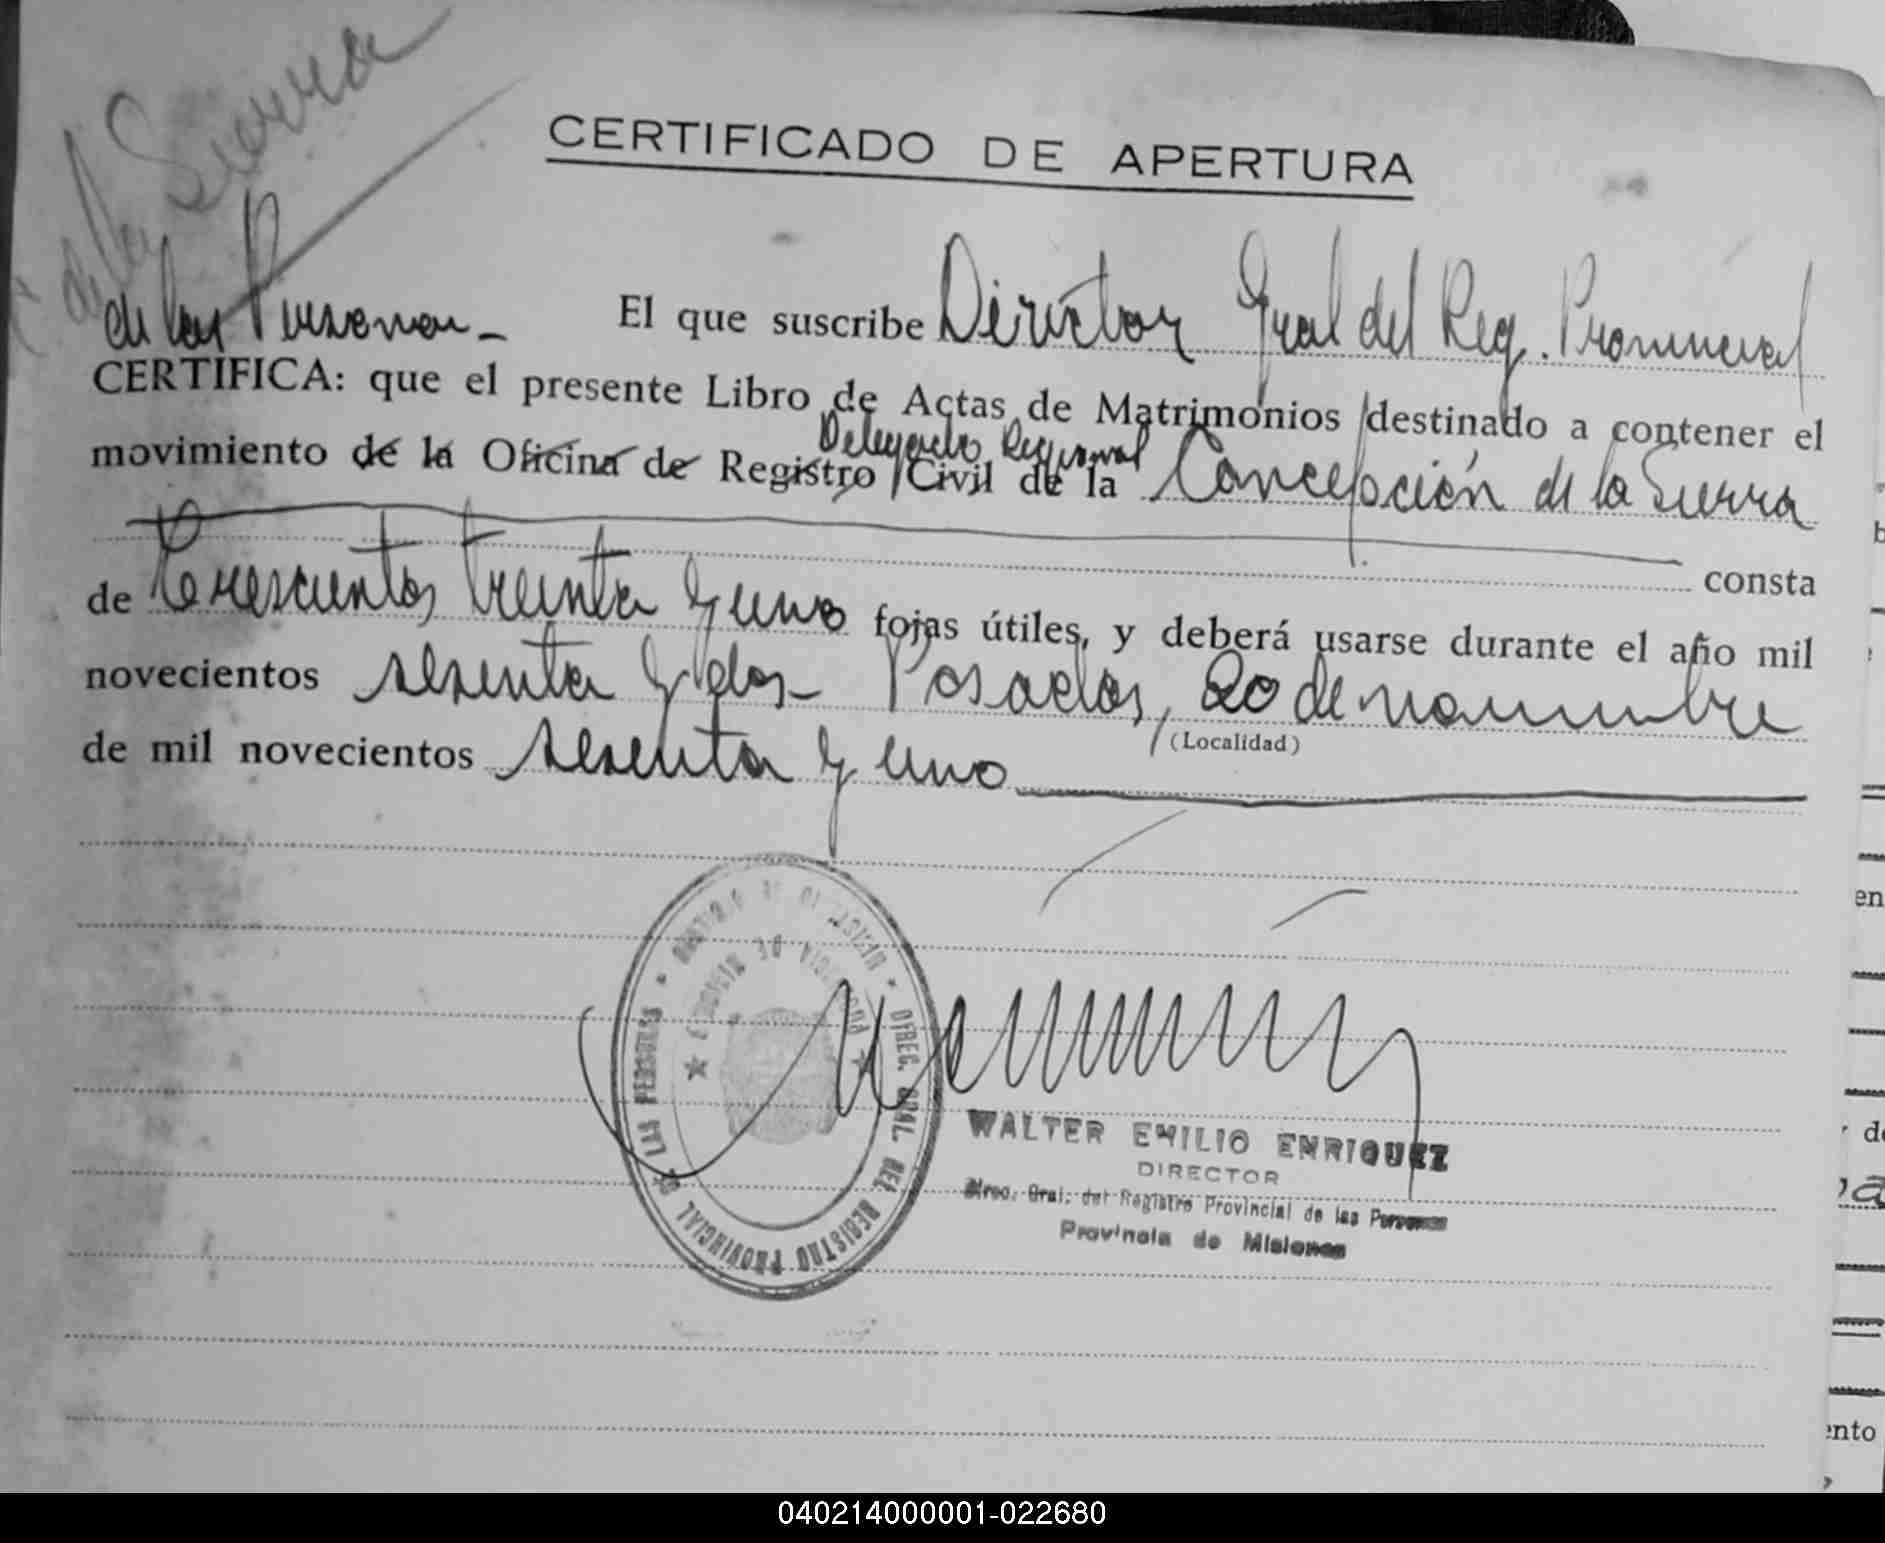 de la Sierra
CERTIFICADO DE APERTURA
El que suscribe Director Gral del Reg. Provincial
de las Personas -
CERTIFICA: que el presente Libro de Actas de Matrimonios destinado a contener el
Delegación Regional
movimiento de la Oficina de Registro Civil de la Concepción de la Sierra
consta
de Trescientos treinta y uno fojas útiles, y deberá usarse durante el año mil
novecientos sesenta y dos - Posadas, 20 de noviembre
(Localidad)
de mil novecientos sesenta y uno
MINISTERIO DE GOBIERNO
PROVINCIA DE MISIONES
DIREC. GRAL. DEL REGISTRO PROVINCIAL DE LAS PERSONAS
WALTER EMILIO ENRIQUEZ
DIRECTOR
Direc. Gral. del Registro Provincial de las Personas
Provincia de Misiones
en
de
ento
040214000001-022680